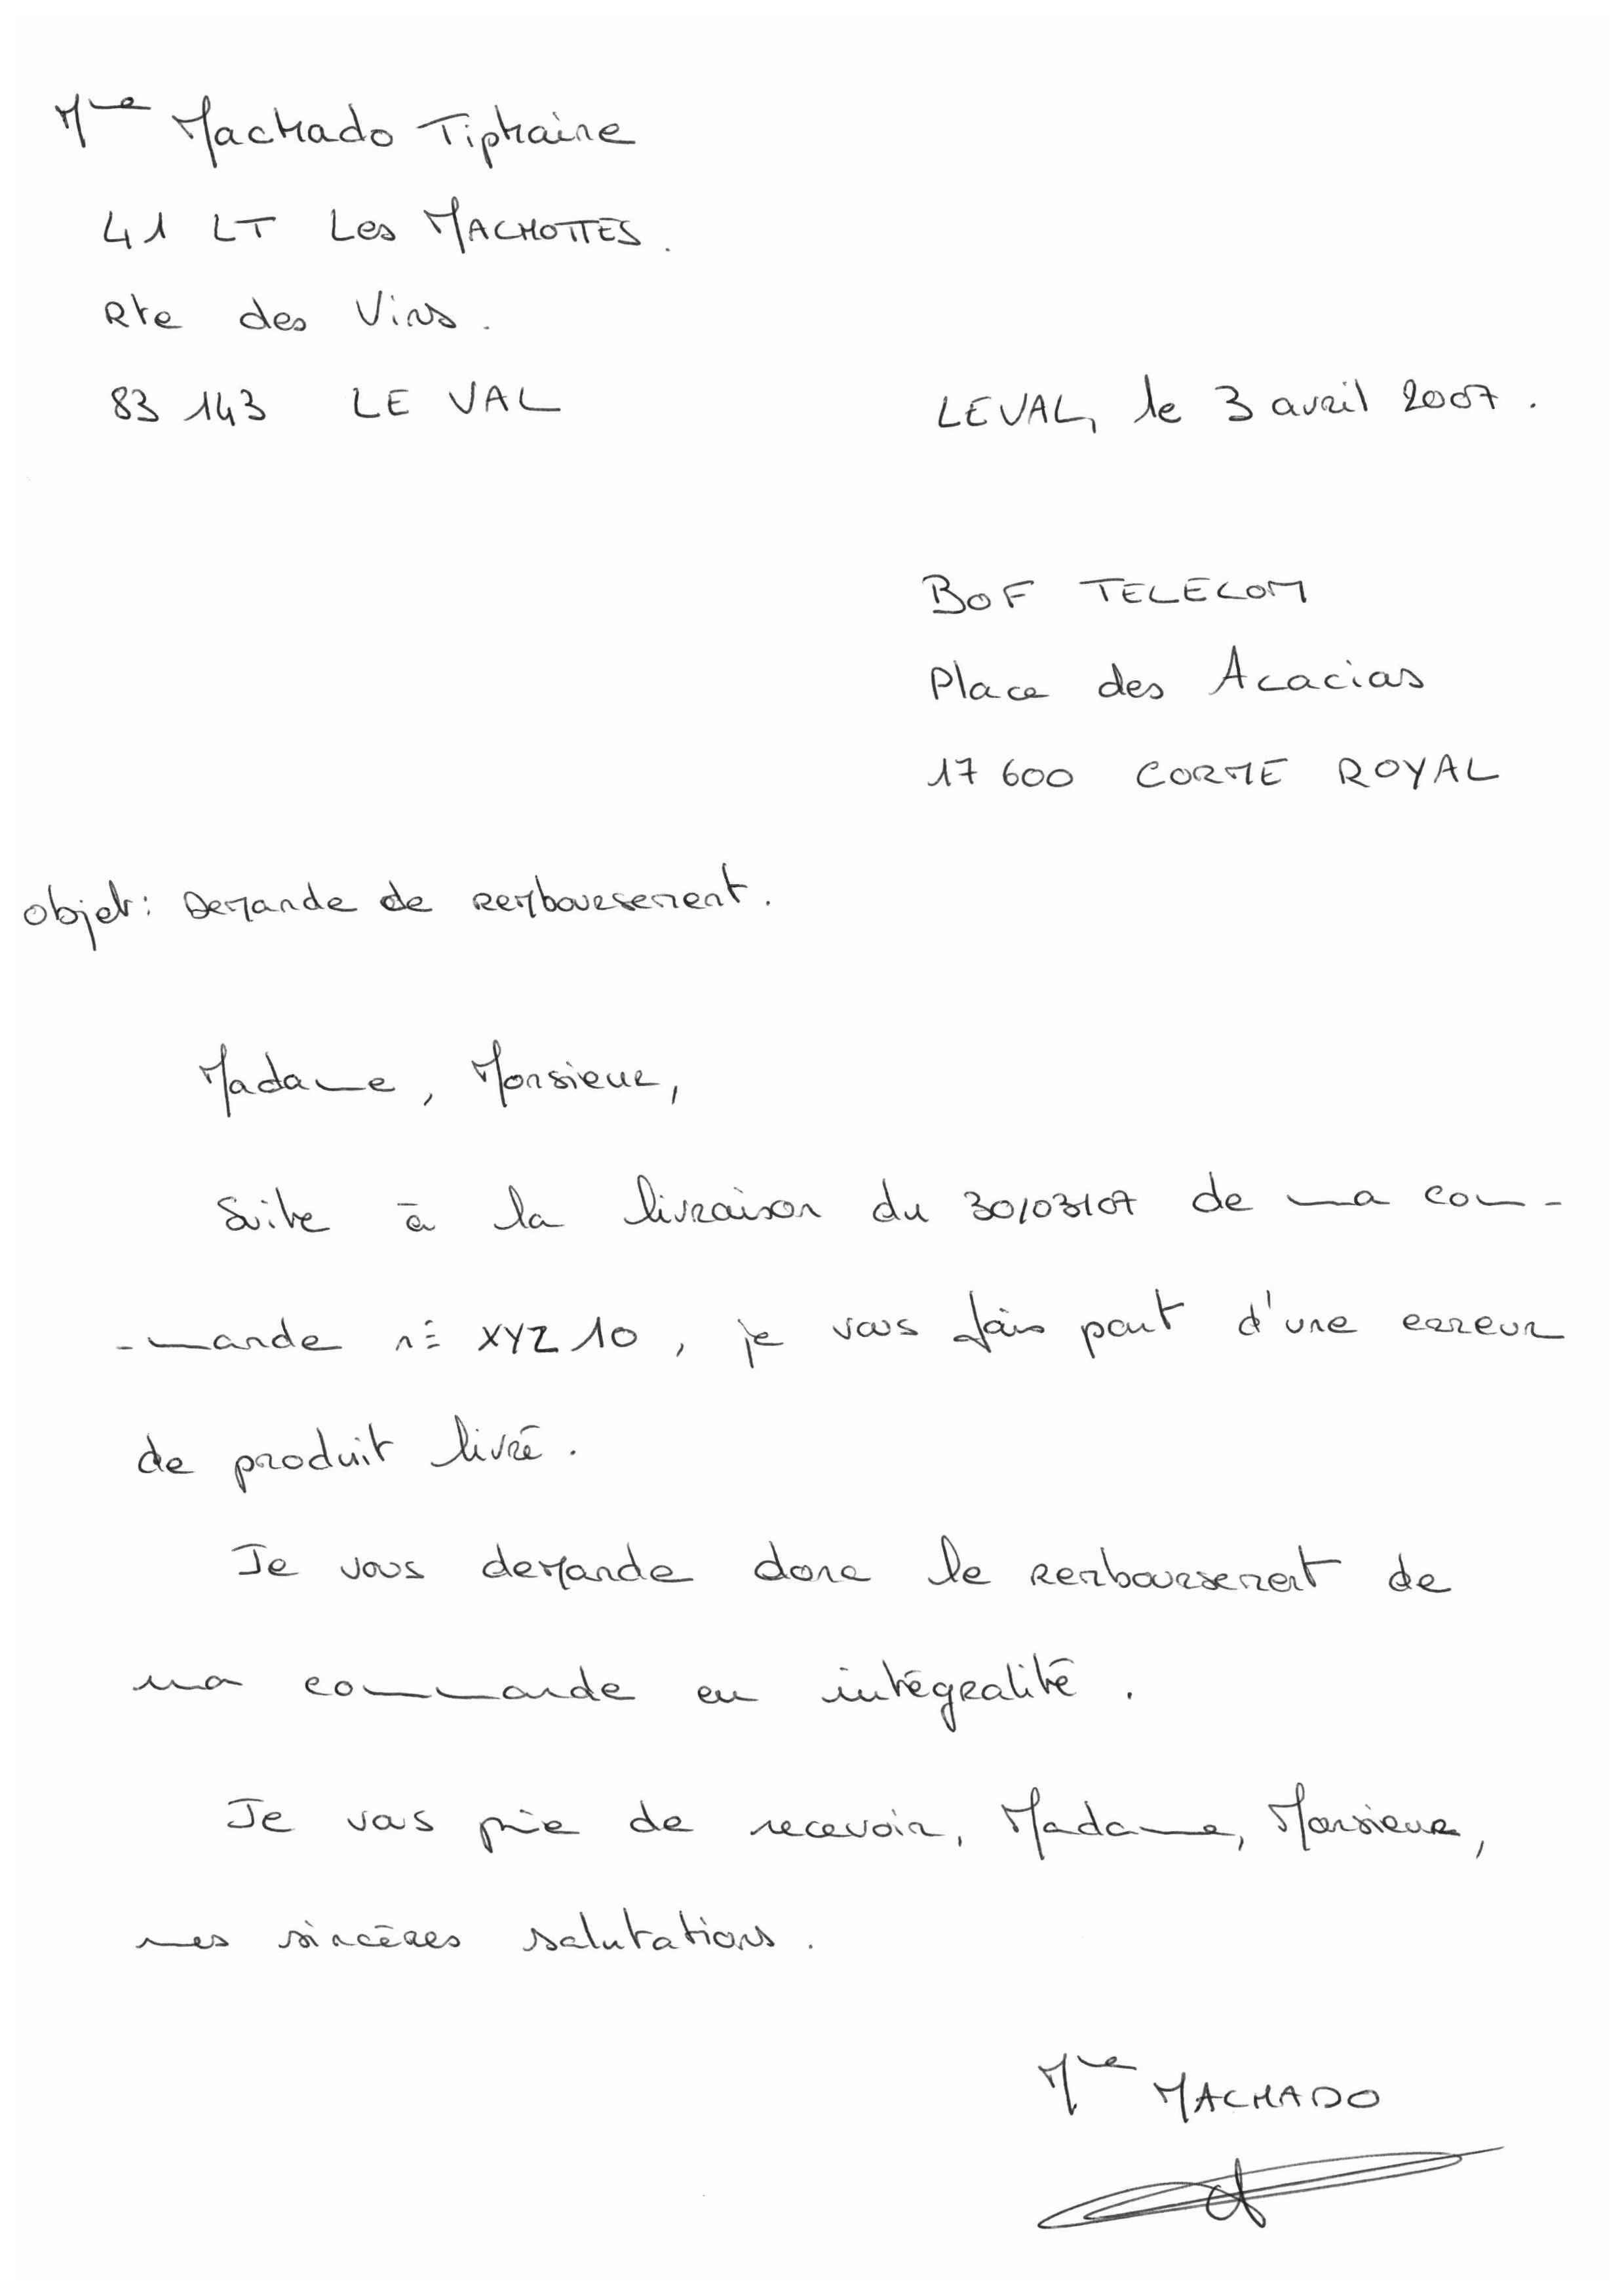 Mme Machado Tiphaine
41 LT Les MACHOTTES.
Rte des Vins.
83 143 LE VAL
LEVAL, le 3 avril 2007.
BOF TELECOM
Place des Acacias
17 600 CORME ROYAL
Objet: Demande de remboursement.
Madame, Monsieur,
Suite à la livraison du 30/03/07 de ma com-
-mande n° XYZ 10, je vous fais part d'une erreur
de produit livré.
Je vous demande donc le remboursement de
ma commande en intégralité.
Je vous prie de recevoir, Madame, Monsieur,
mes sincères salutations.
Mme MACHADO